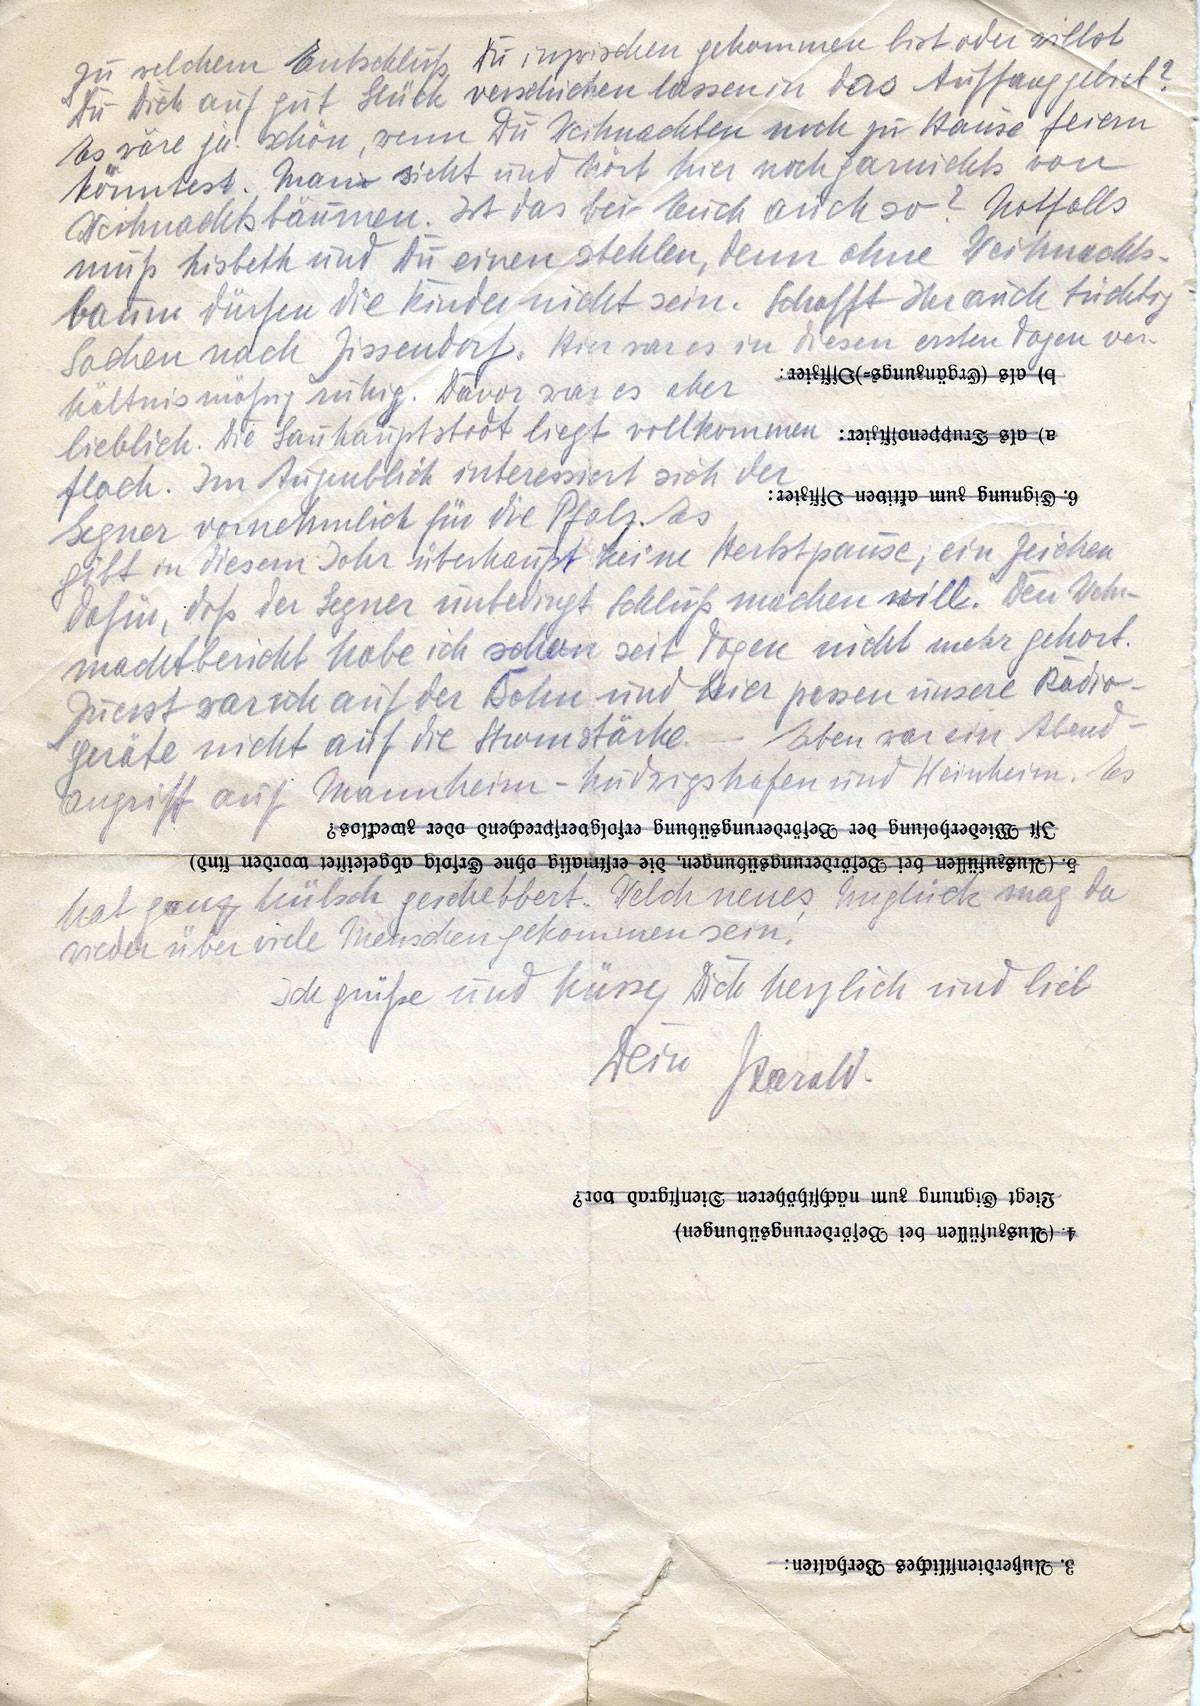 zu welchem Entschluß Du inzwischen gekommen bist oder willst
Du Dich auf gut Glück verschicken lassen in das Auffanggebiet?
Es wäre ja schön, wenn Du Weihnachten noch zu Hause feiern
könntest. Man sieht und hört hier noch garnichts von
Weihnachtsbäumen. Ist das bei Euch auch so? Notfalls
muß Lisbeth und Du einen stehlen, denn ohne Weihnachts-
baum dürfen die Kinder nicht sein. Schafft Ihr auch tüchtig
Sachen nach Zissendorf. Hier war es in diesen ersten Tagen ver-
b) als (Ergänzungs-)Offizier:
hältnismäßig ruhig. Davor war es aber
lieblich. Die Gauhauptstadt liegt vollkommen
a) als Truppenoffizier:
flach. Im Augenblick interessiert sich der
6. Eignung zum aktiven Offizier:
Gegner vornehmlich für die Pfalz. Es
gibt in diesem Jahr überhaupt keine Herbstpause, ein Zeichen
dafür, daß der Gegner unbedingt Schluß machen will. Den Wehr-
machtbericht habe ich schon seit Tagen nicht mehr gehört.
Zuerst war ich auf der Bahn und hier passen unsere Radio-
geräte nicht auf die Stromstärke. — Eben war ein Abend-
angriff auf Mannheim-Ludwigshafen und Weinheim. Es
Ist Wiederholung der Beförderungsübung erfolgversprechend oder zwecklos?
5. (Auszufüllen bei Beförderungsübungen, die erstmalig ohne Erfolg abgeleistet worden sind)
hat ganz hübsch gescheppert. Welch neues Unglück mag da
wieder über viele Menschen gekommen sein!
Ich grüße und küsse Dich herzlich und lieb
Dein Harald.
Liegt Eignung zum nächsthöheren Dienstgrad vor?
4. (Auszufüllen bei Beförderungsübungen)
3. Außerdienstliches Verhalten: